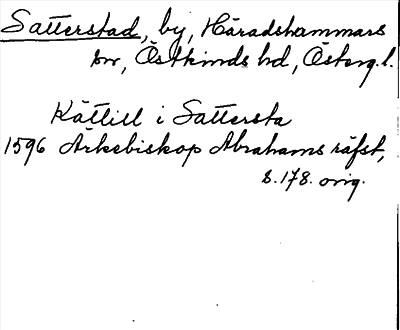 Satterstad, by, Häradshammars
sn, Östkinds hd, Österg.l.
Kättill i Sattersta
1596 Ärkebiskop Abrahams räfst,
s. 178. orig.